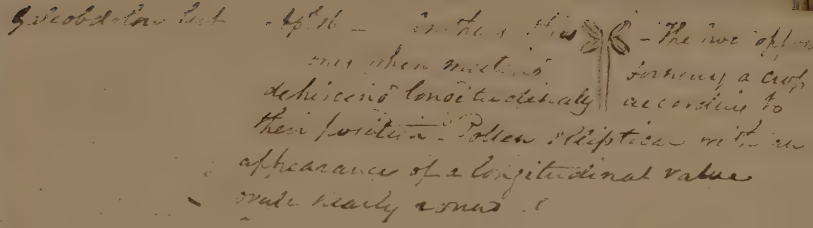 Galeobdolon lut Apl 16 - - The two oppos
ones when meeting forming a cross
dehiscing longitudinaly according to
their position - Pollen elliptical with an
appearance of a longitudinal valve
ovule nearly round